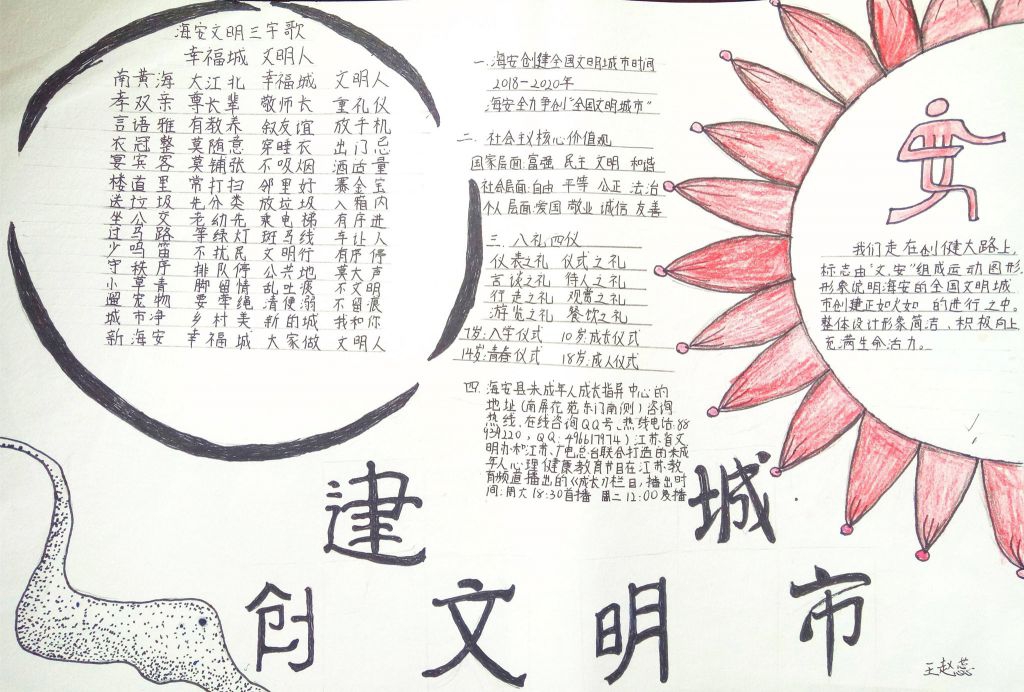 海安文明三字歌
幸福城 文明人
南黄海 大江北 幸福城 文明人
孝双亲 尊长辈 敬师长 重礼仪
言语雅 有教养 叙友谊 放手机
衣冠整 莫随意 穿睡衣 出门忌
宴宾客 莫铺张 不吸烟 酒适量
楼道里 常打扫 邻里好 赛金宝
送垃圾 先分类 放垃圾 入箱内
坐公交 老幼先 乘电梯 有序进
过马路 等绿灯 斑马线 车让人
少鸣笛 不扰民 文明行 有序停
守秩序 排队停 公共地 莫大声
小草青 脚留情 乱吐痰 不文明
遛宠物 要牵绳 清便溺 不留痕
城市净 乡村美 新的城 我和你
新海安 幸福城 大家做 文明人
一、海安创建全国文明城市时间
2018-2020年
海安全力争创"全国文明城市"
二、社会主义核心价值观
国家层面:富强 民主 文明 和谐
社会层面:自由 平等 公正 法治
个人层面:爱国 敬业 诚信 友善
三、八礼四仪
仪表之礼 仪式之礼
言谈之礼 待人之礼
行走之礼 观赏之礼
游览之礼 餐饮之礼
7岁:入学仪式 10岁:成长仪式
14岁:青春仪式 18岁:成人仪式
四、海安县未成年人成长指导中心的
地址(南屏花苑东门南侧)咨询
热线、在线咨询QQ号、热线电话:88
939220,QQ:496617974)江苏省文
明办和江苏广电总台联合打造的未成
年人心理健康教育节目在江苏教
育频道播出的《成长》栏目,播出时
间:周六18:30首播 周二12:00重播
我们走在创健大路上,
标志由"文、安"组成运动图形,
形象说明海安的全国文明城
市创建正如火如 的进行之中。
整体设计形象简洁、积极向上
充满生命活力。
建 城
创 文 明 市
王赵蕊